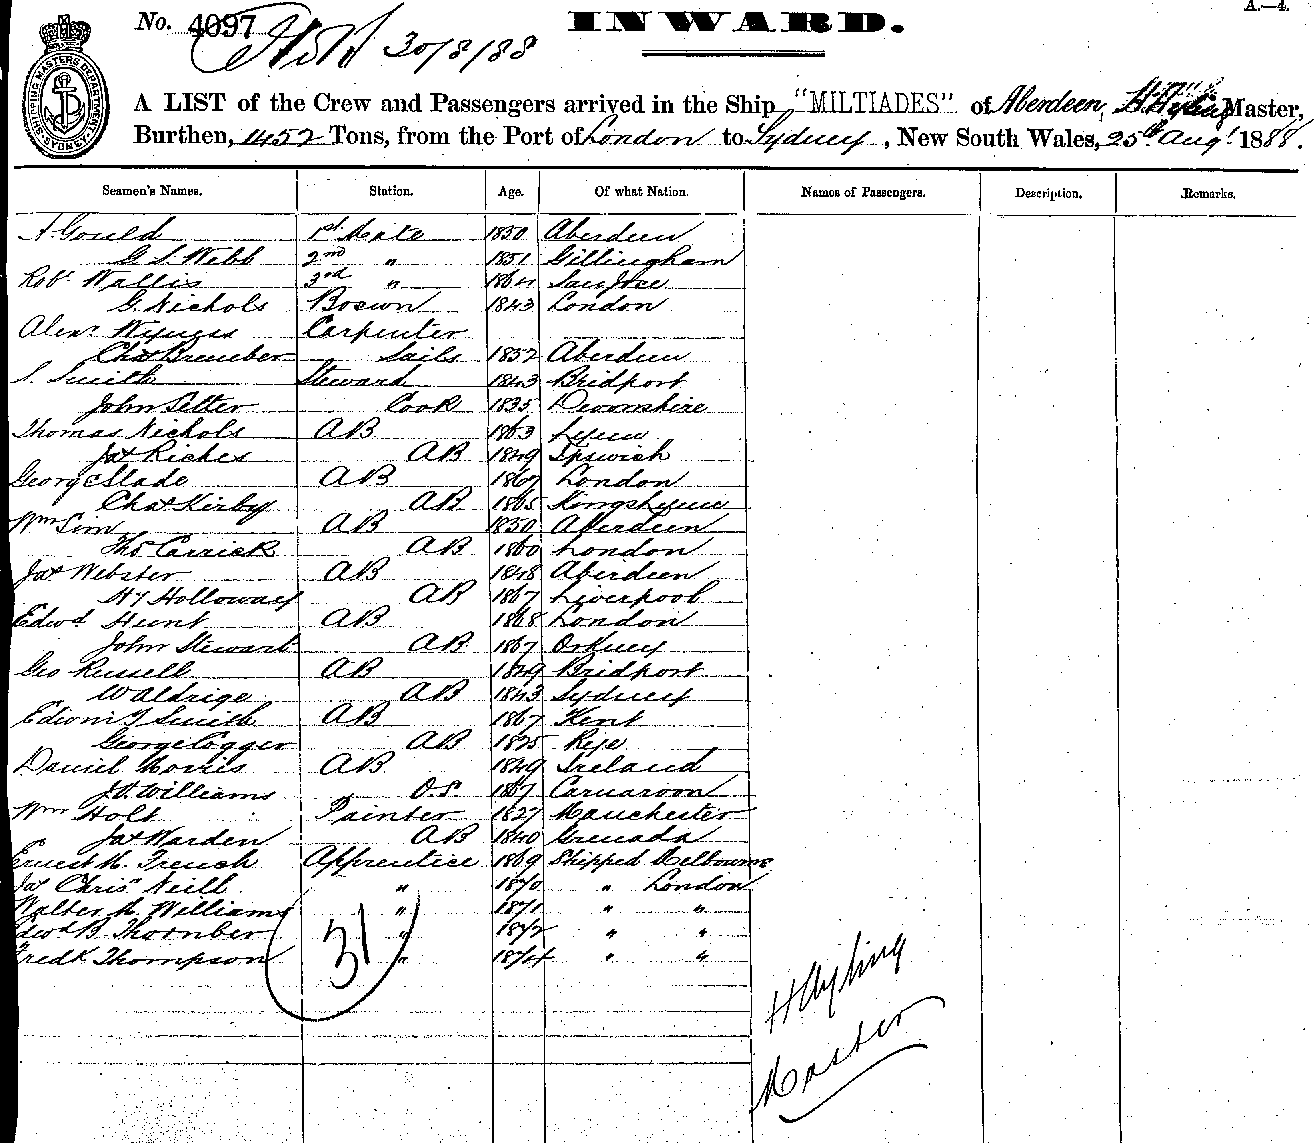 A.—4.
No. 4097 INWARD.
30/8/88
SHIPPING MASTERS DEPARTMENT SYDNEY
A LIST of the Crew and Passengers arrived in the Ship "MILTIADES" of Aberdeen, H. Ayling Master,
Burthen, 1452 Tons, from the Port of London to Sydney, New South Wales, 25th Augt 1888.
Seamen's Names. Station. Age. Of what Nation. Names of Passengers. Description. Remarks.
A Gould 1st Mate 1850 Aberdeen
G S Webb 2nd " 1851 Gillingham
Robt Wallis 3rd " 1864 San Jose
G. Nichols Bosun 1843 London
Alexr Carpenter
Chas Sails 1852 Aberdeen
S. Smith Steward 1843 Bridport
John Setter Cook 1835 Devonshire
Thomas Nichols AB 1863 Lynn
Jas Riches AB 1849 Ipswich
George Slade AB 1867 London
Chas Kirby AB 1865 Kings Lynn
Wm Sim AB 1850 Aberdeen
Thos Carrick AB 1860 London
Jas Webster AB 1848 Aberdeen
Hy Holloway AB 1867 Liverpool
Edwd Hunt AB 1868 London
John Stewart AB 1867 Orkney
Geo Russell AB 1849 Bridport
W Aldrige AB 1843 Sydney
Smith AB 1867 Kent
George Cogger AB 1825 Rye
Daniel Morris AB 1849 Ireland
Williams O.S. 1867 Carnarvon
Wm Holt Painter 1827 Manchester
Jas Warden AB 1840 Grenada
Ernest H. French Apprentice 1869 Shipped Melbourne
Jas Chrisr Neill " 1870 " London
Walter A. Williams " 1871 " "
Edwd B. Thornber " 1872 " "
Fredk Thompson " 1874 " "
31
H Ayling
Master